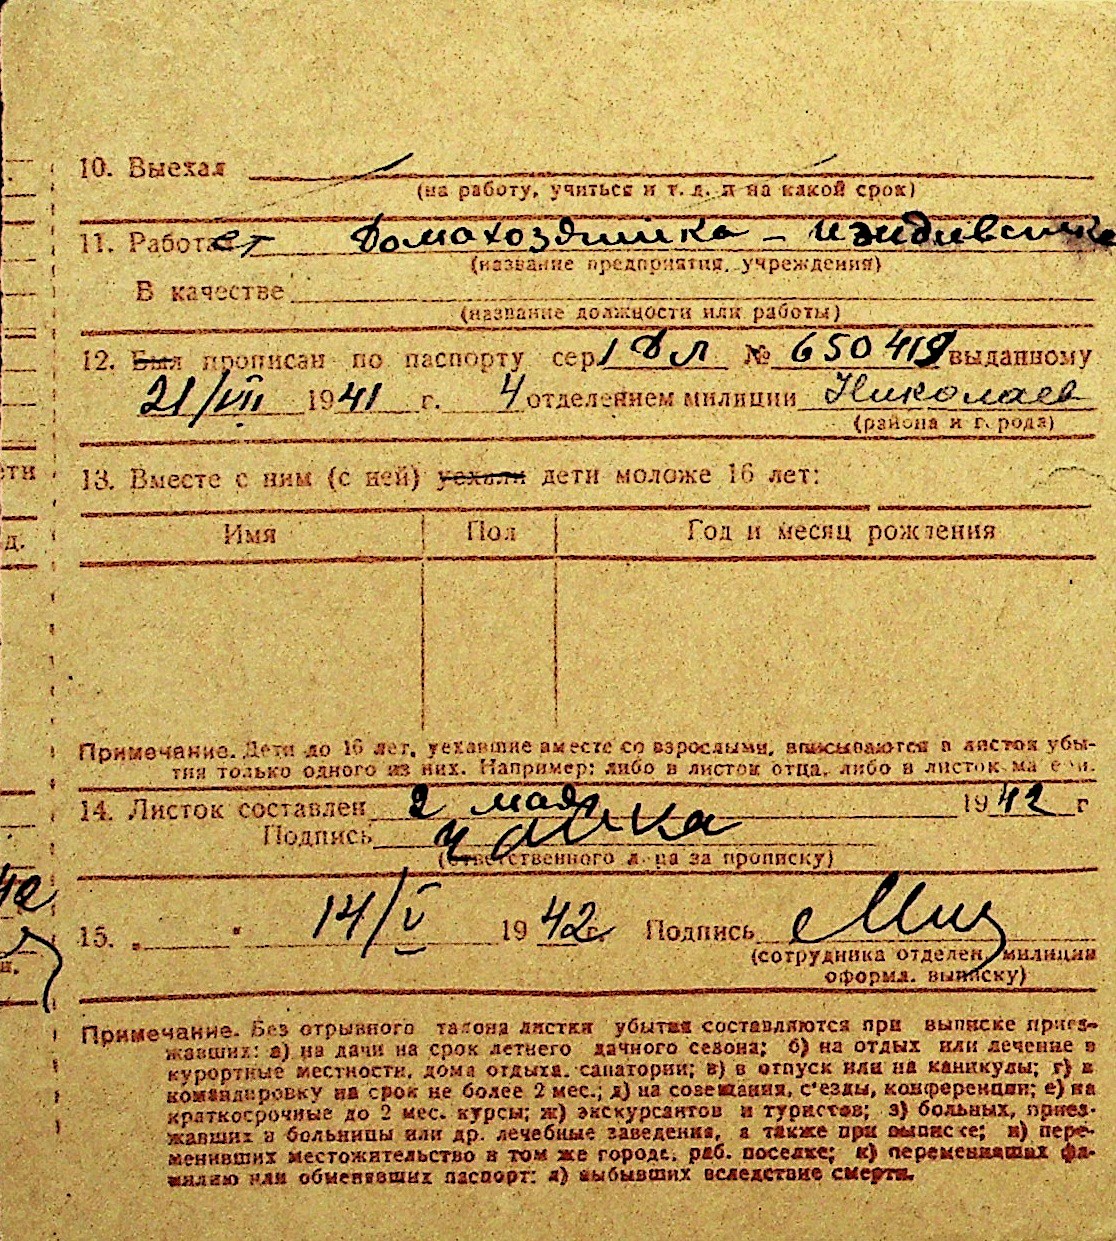 10. Выехал
(на работу, учиться и т. д. и на какой срок)
11. Работает Домохозяйка - иждивенка
(название предприятия, учреждения)
В качестве
(название должности или работы)
12. Был прописан по паспорту сер. 1 ДЛ № 650419 выданному
21/VII 1941 г. 4 отделением милиции Николаев
(района и города)
ети
13. Вместе с ним (с ней) уехали дети моложе 16 лет:
д.
Имя Пол Год и месяц рождения
Примечание. Дети до 16 лет, уехавшие вместе со взрослыми, вписываются в листок убы-
тия только одного из них. Например: либо в листок отца, либо в листок матери.
14. Листок составлен 2 мая 1942 г
Подпись
(ответственного лица за прописку)
15. „ " 14/V 1942 г. Подпись
(сотрудника отделен. милиции
оформ. выписку)
Примечание. Без отрывного талона листки убытия составляются при выписке приез-
жавших: а) на дачи на срок летнего дачного сезона; б) на отдых или лечение в
курортные местности, дома отдыха, санатории; в) в отпуск или на каникулы; г) в
командировку на срок не более 2 мес.; д) на совещания, с'езды, конференции; е) на
краткосрочные до 2 мес. курсы; ж) экскурсантов и туристов; з) больных, приез-
жавших в больницы или др. лечебные заведения, а также при выписке; и) пере-
менивших местожительство в том же городе, раб. поселке; к) переменивших фа-
милию или обменявших паспорт; л) выбывших вследствие смерти.